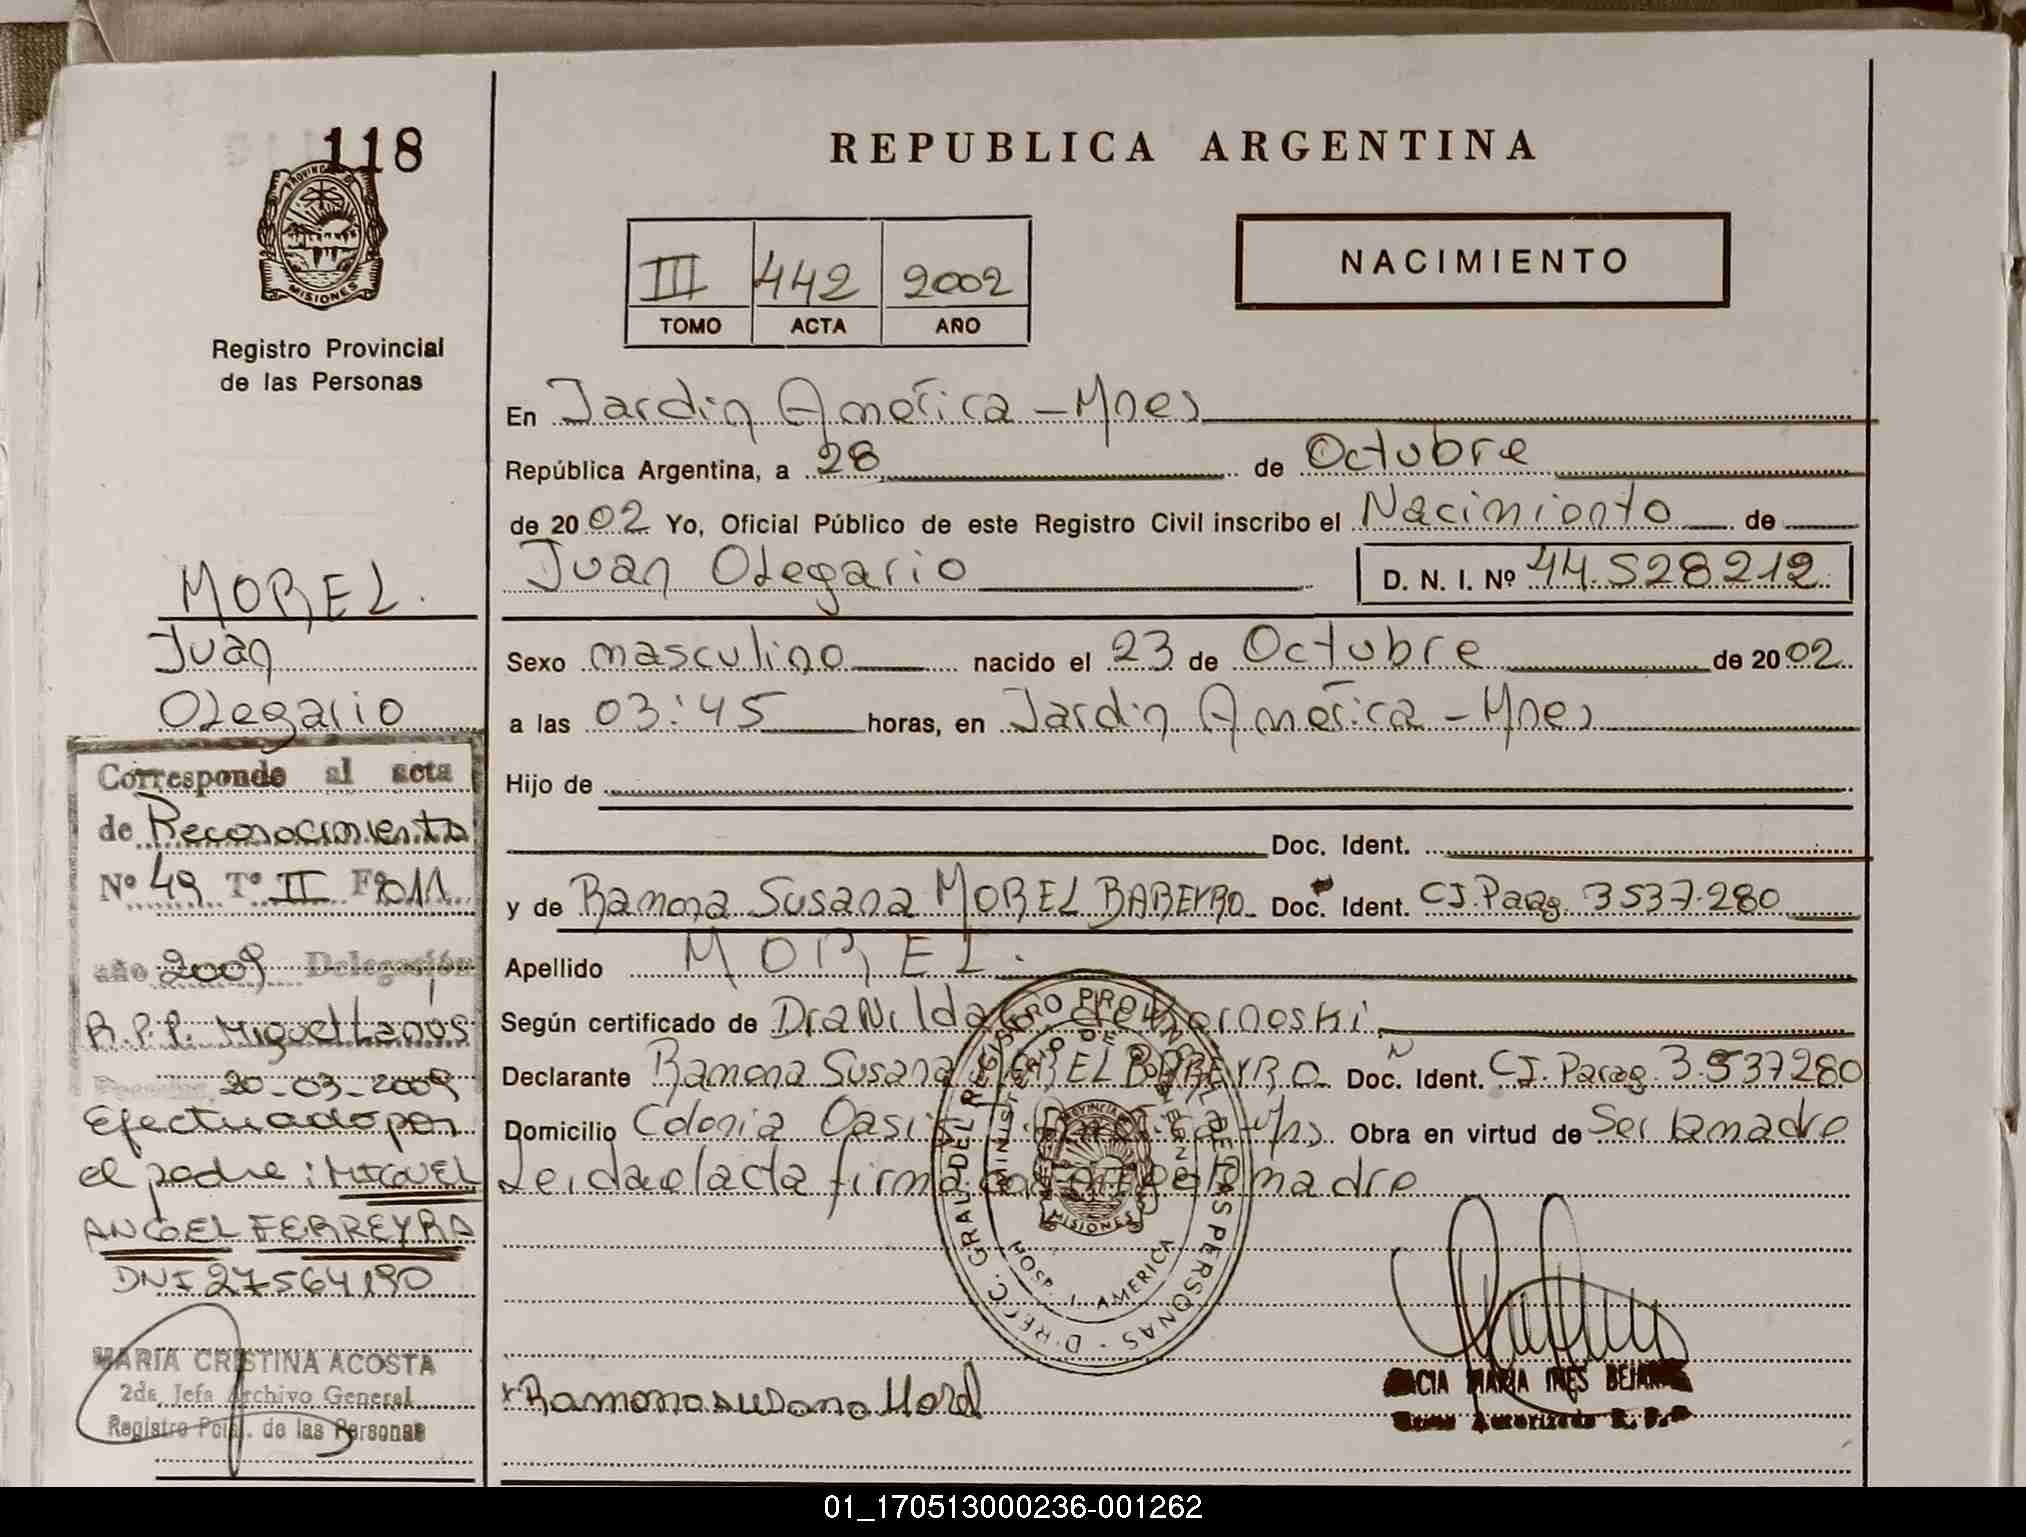 118
PROVINCIA DE
MISIONES
Registro Provincial
de las Personas
MOREL.
Juan
Olegario
Corresponde al acta
de Reconocimiento
Nº 49 Tº II Fº 2011
año 2009 Delegación
R.P.P. Miguel Lanús
20-03-2009
Efectuado por
el padre: MIGUEL
ANGEL FERREYRA
DNI 27564190
MARIA CRISTINA ACOSTA
2da. Jefa Archivo General
Registro Pcial. de las Personas
REPUBLICA ARGENTINA
III 442 2002
TOMO ACTA AÑO
NACIMIENTO
En Jardín América - Mnes
República Argentina, a 28 de Octubre
de 2002 Yo, Oficial Público de este Registro Civil inscribo el Nacimiento de
Juan Olegario D. N. I. Nº 44.528212
Sexo masculino nacido el 23 de Octubre de 2002
a las 03:45 horas, en Jardín América - Mnes
Hijo de
Doc. Ident.
y de Ramona Susana MOREL BAREYRO Doc. Ident. CI. Parag. 3537.280
Apellido MOREL.
Según certificado de Dra Nilda
Declarante Ramona Susana MOREL BAREYRO Doc. Ident. CI. Parag. 3.537280
Domicilio Colonia Oasis Obra en virtud de Ser la madre
Leida el acta firma la madre
DIREC. GRAL. DEL REGISTRO PROVINCIAL DE LAS PERSONAS
MINISTERIO DE GOBIERNO
PROVINCIA
MISIONES
HOSP. J. AMERICA
x Ramona Susana Morel
MARIA INES
Autorizada R. P. P
01_170513000236-001262